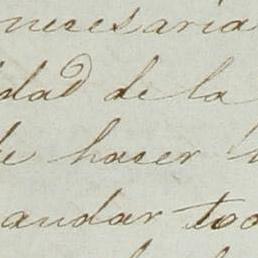 necesaria
dad de la
de hacer l
andar too